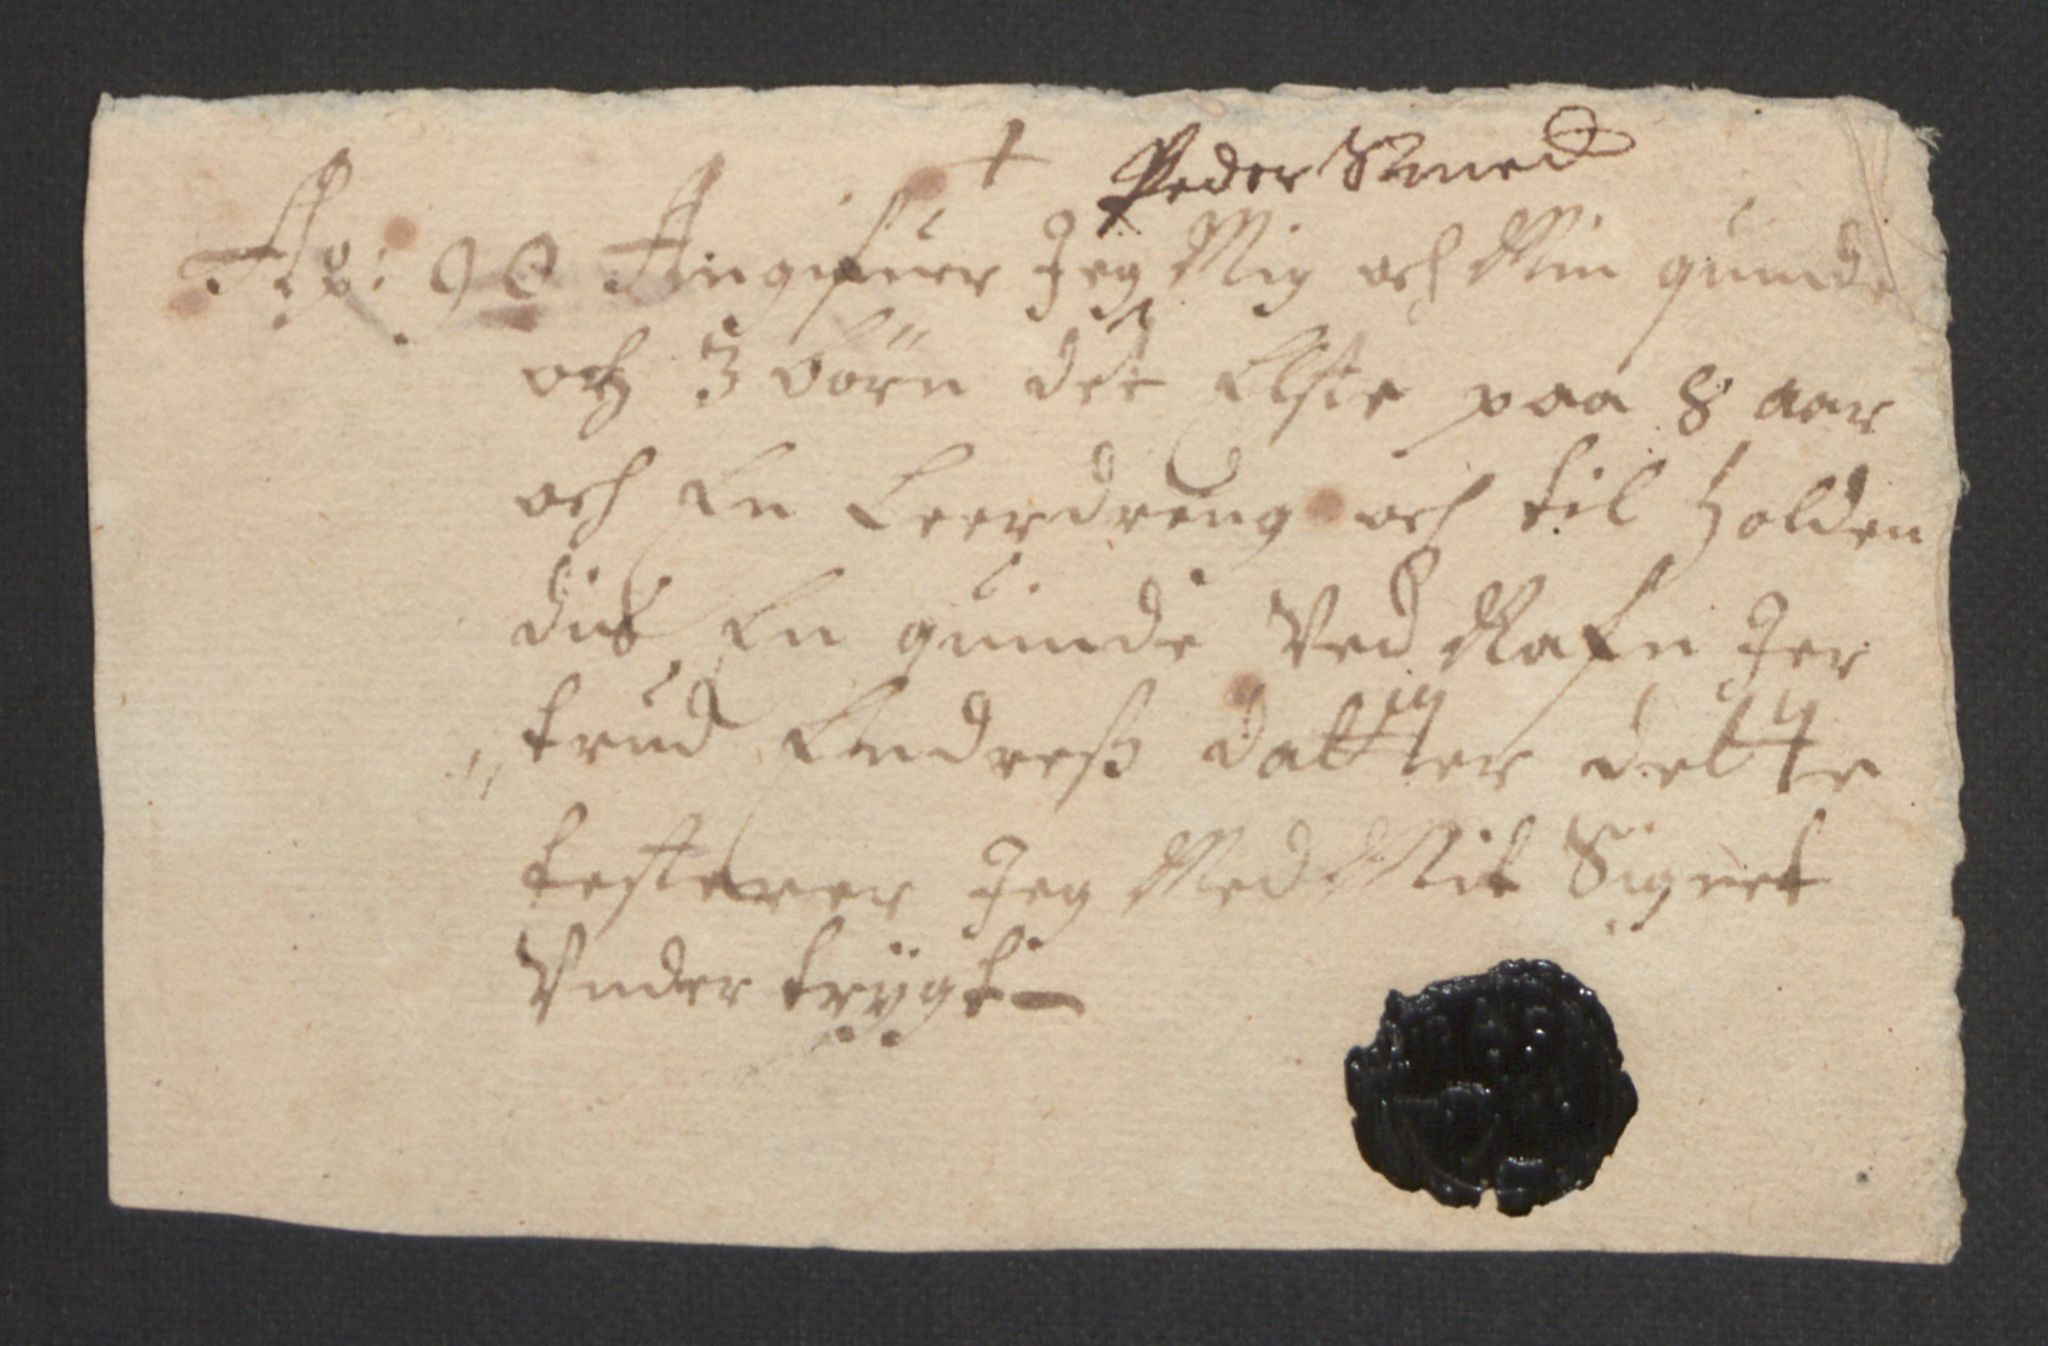 + Peder Smed
Ao: 90 Angifuer Jeg Mig och Min quinde
och 3 börn det Elste paa 8 aar
och En Leerdreng och til Holden
dis En quinde Ved Nafn Jer
trud Endreß datter dette
testerer Jeg Med Mit Signet
Vnder trygt